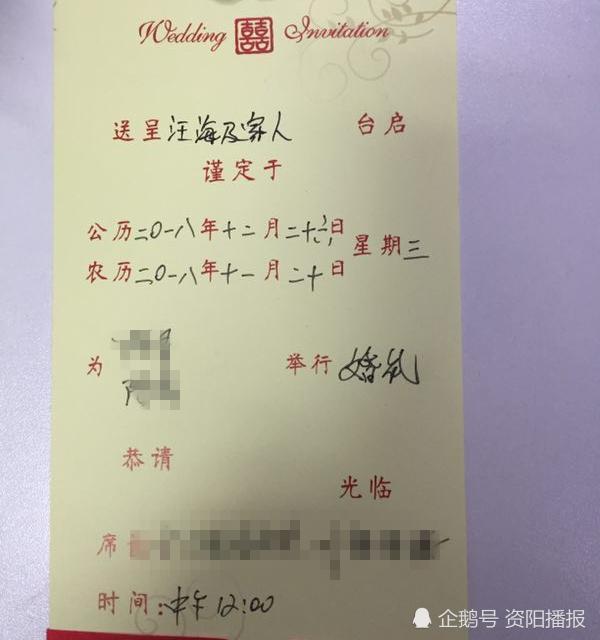 Wedding 囍 Invitation
送呈汪海及家人 台启
谨定于
公历二〇一八年十二月二十六日 星期三
农历二〇一八年十一月二十日
为 举行婚礼
恭请
光临
席
时间:中午12:00
企鹅号 资阳播报